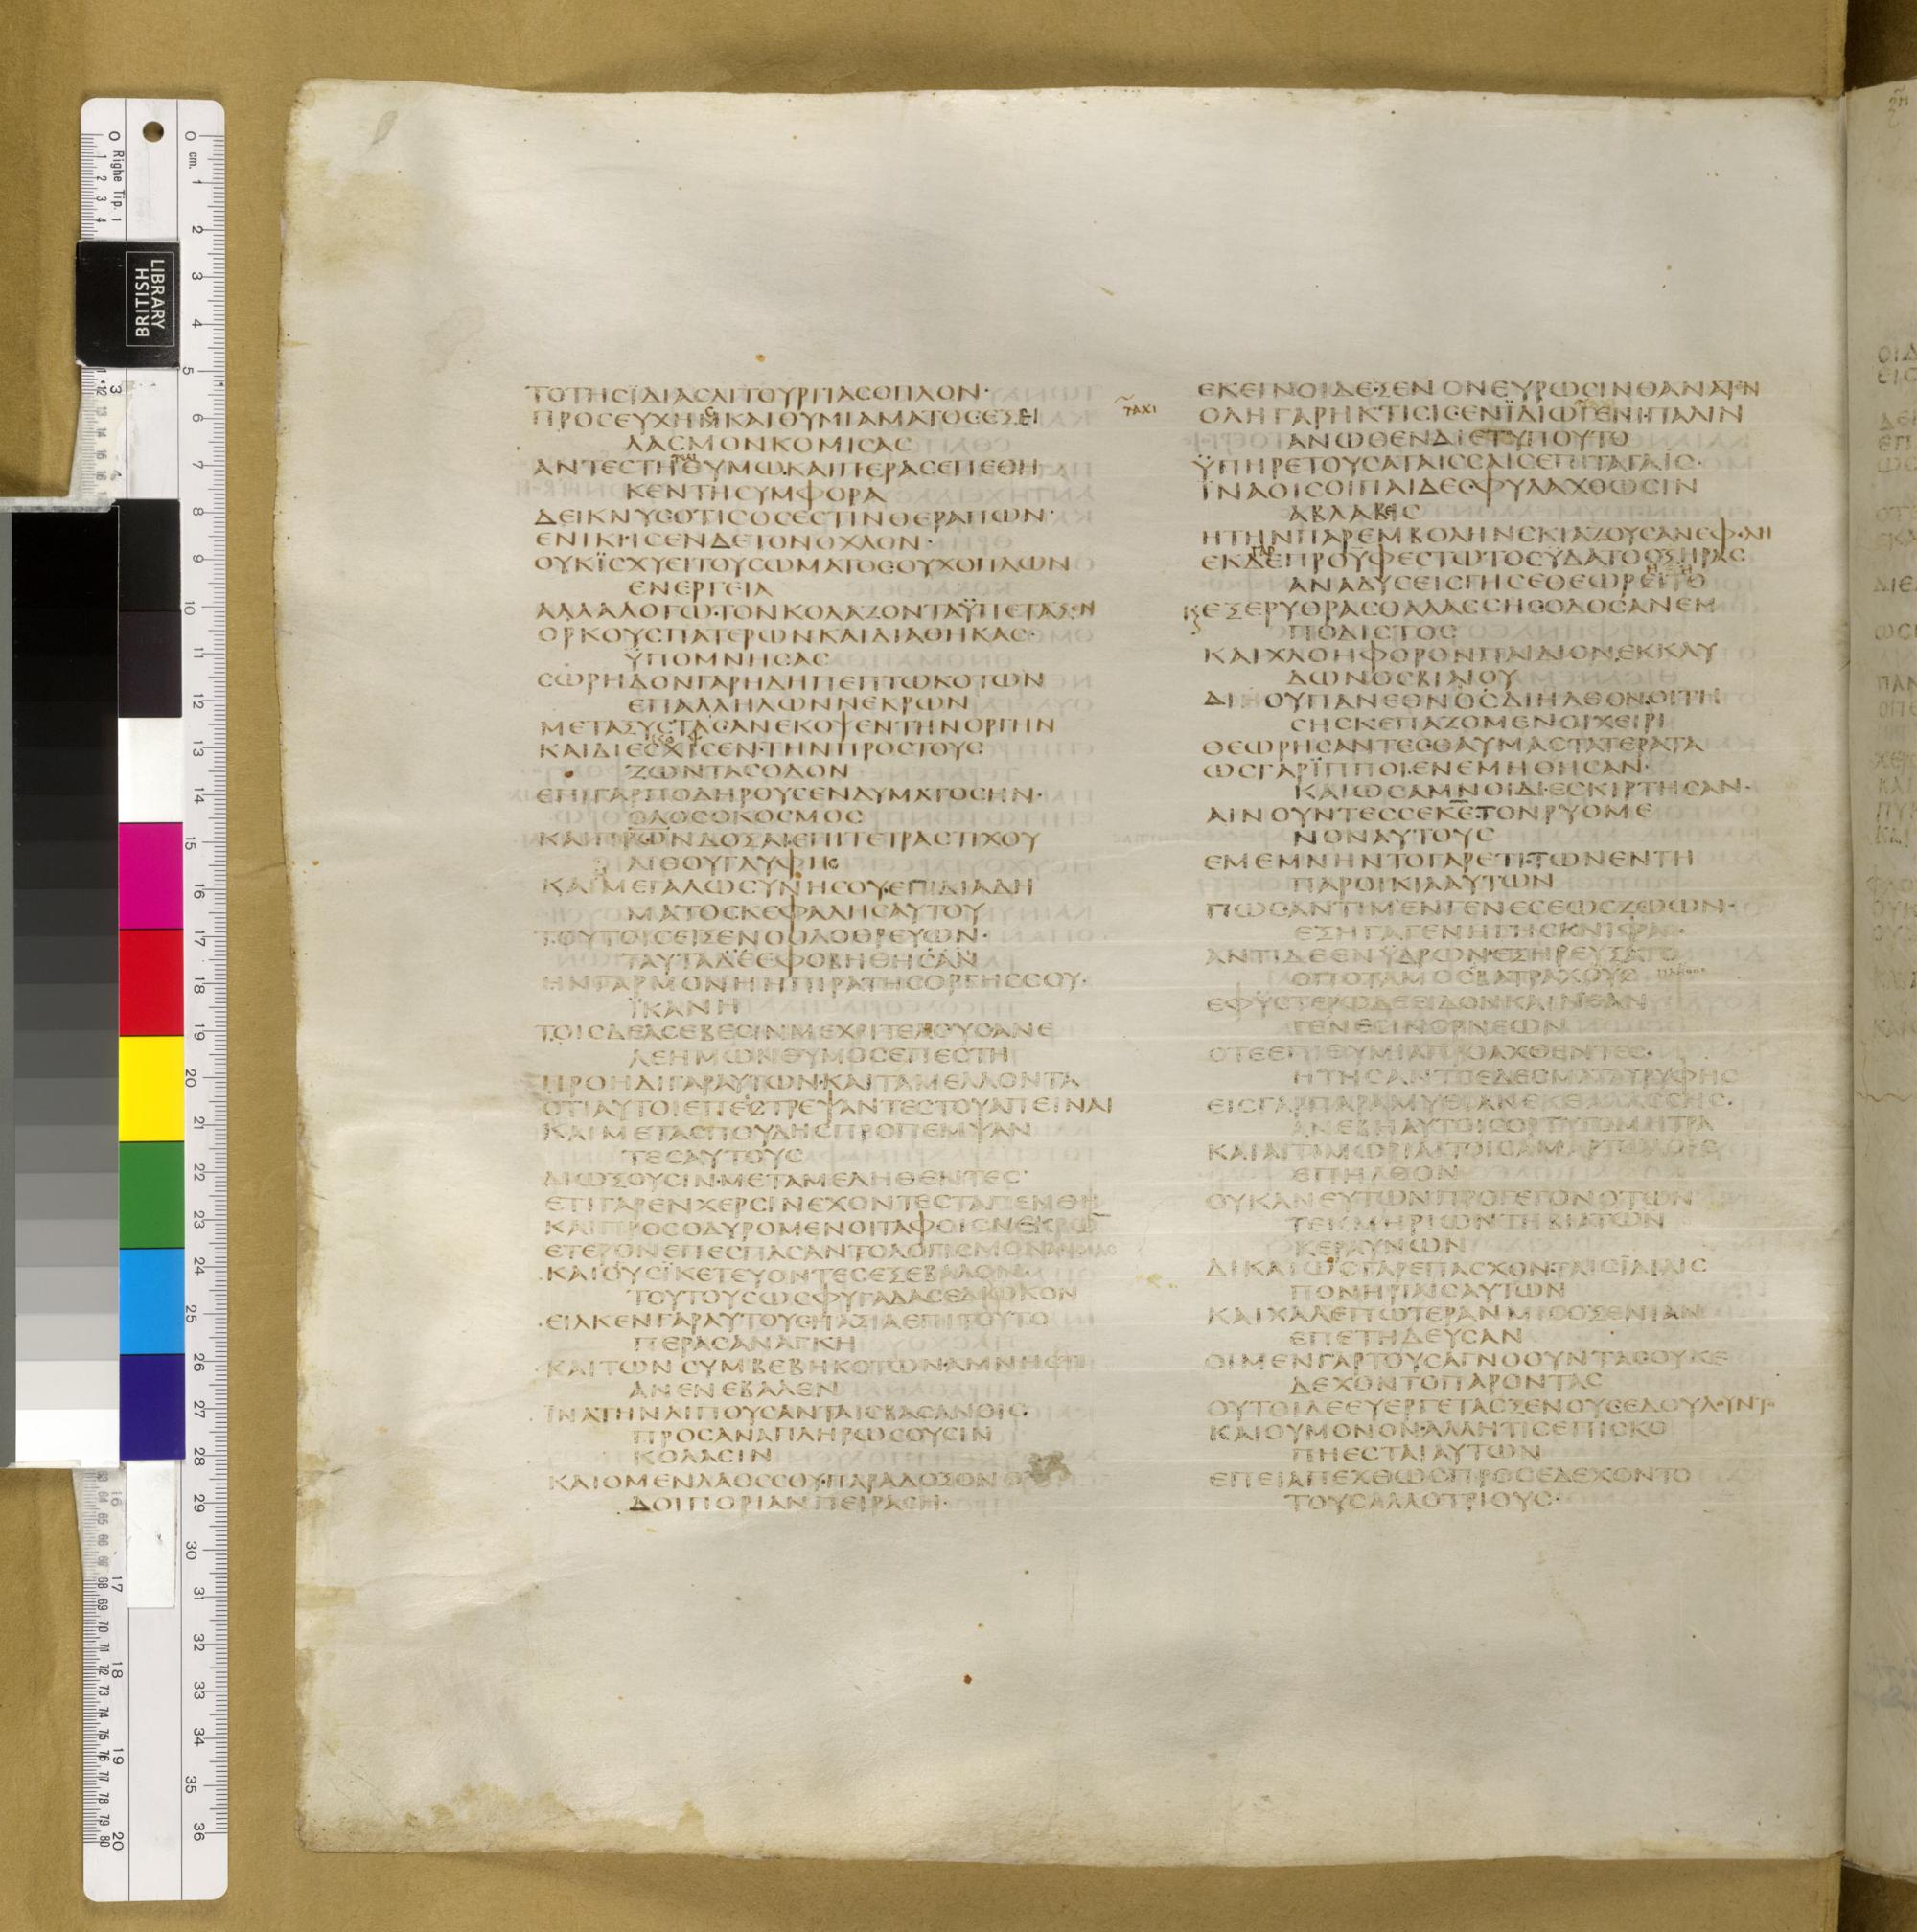 ΤΟΤΗCΪΔΙΑCΛΙΤΟΥΡΓΙΑCΟΠΛΟΝ·
ΠΡΟCΕΥΧΗΝΚΑΙΘΥΜΙΑΜΑΤΟCΕΞΕΙ
ΛΑCΜΟΝΚΟΜΙCΑC
ΑΝΤΕCΤΗΘΥΜΩΚΑΙΠΕΡΑCΕΠΕΘΗ
ΚΕΝΤΗCΥΜΦΟΡΑ
ΔΕΙΚΝΥCΟΤΙCΟCΕCΤΙΝΘΕΡΑΠΩΝ·
ΕΝΙΚΗCΕΝΔΕΤΟΝΟΧΛΟΝ·
ΟΥΚΪCΧΥΕΙΤΟΥCΩΜΑΤΟCΟΥΧΟΠΛΩΝ
ΕΝΕΡΓΕΙΑ
ΑΛΛΑΛΟΓΩ·ΤΟΝΚΟΛΑΖΟΝΤΑΫΠΕΤΑΞΕΝ
ΟΡΚΟΥCΠΑΤΕΡΩΝΚΑΙΔΙΑΘΗΚΑC·
ΫΠΟΜΝΗCΑC
CΩΡΗΔΟΝΓΑΡΗΔΗΠΕΠΤΩΚΟΤΩΝ
ΕΠΑΛΛΗΛΩΝΝΕΚΡΩΝ
ΜΕΤΑΞΥCΤΑCΑΝΕΚΟΨΕΝΤΗΝΟΡΓΗΝ
ΚΑΙΔΙΕCΧΙCΕΝ·ΤΗΝΠΡΟCΤΟΥC
ΖΩΝΤΑCΟΔΟΝ
ΕΠΙΓΑΡΠΟΔΗΡΟΥCΕΝΔΥΜΑΤΟCΗΝ·
ΟΛΟCΟΚΟCΜΟC
ΛΙΘΟΥΓΛΥΦΗC
ΚΑΙΜΕΓΑΛΩCΥΝΗCΟΥ·ΕΠΙΔΙΑΔΗ
ΜΑΤΟCΚΕΦΑΛΗCΑΥΤΟΥ
ΤΟΥΤΟΙCΕΙΞΕΝΟΟΛΟΘΡΕΥΩΝ·
ΤΑΥΤΑΔΕΕΦΟΒΗΘΗCΑΝ
ΗΝΓΑΡΜΟΝΗΗΠΙΡΑΤΗCΟΡΓΗCCΟΥ·
ΪΚΑΝΗ
ΤΟΙCΔΕΑCΕΒΕCΙΝΜΕΧΡΙΤΕΛΟΥCΑΝΕ
ΛΕΗΜΩΝΘΥΜΟCΕΠΕCΤΗ
ΠΡΟΗΔΙΓΑΡΑΥΤΩΝ·ΚΑΙΤΑΜΕΛΛΟΝΤΑ
ΟΤΙΑΥΤΟΙΕΠΕCΤΡΕΨΑΝΤΕCΤΟΥΑΠΕΙΝΑΙ
ΚΑΙΜΕΤΑCΠΟΥΔΗCΠΡΟΠΕΜΨΑΝ
ΤΕCΑΥΤΟΥC
ΔΙΩΞΟΥCΙΝ·ΜΕΤΑΜΕΛΗΘΕΝΤΕC·
ΕΤΙΓΑΡΕΝΧΕΡCΙΝΕΧΟΝΤΕCΤΑΠΕΝΘΗ
ΚΑΙΠΡΟCΟΔΥΡΟΜΕΝΟΙΤΑΦΟΙCΝΕΚΡΩ̅
ΚΑΙΟΥCΪΚΕΤΕΥΟΝΤΕCΕΞΕΒΑΛΟΝ
ΤΟΥΤΟΥCΩCΦΥΓΑΔΑCΕΔΙΩΚΟΝ
ΕΙΛΚΕΝΓΑΡΑΥΤΟΥCΗΑΞΙΑΕΠΙΤΟΥΤΟ
ΠΕΡΑCΑΝΑΓΚΗ
ΚΑΙΤΩΝCΥΜΒΕΒΗΚΟΤΩΝΑΜΝΗCΤΙ
ΑΝΕΝΕΒΑΛΕΝ
ΪΝΑΤΗΝΛΙΠΟΥCΑΝΤΑΙCΒΑCΑΝΟΙC
ΠΡΟCΑΝΑΠΛΗΡΩCΟΥCΙΝ
ΚΟΛΑCΙΝ
ΚΑΙΟΜΕΝΛΑΟCCΟΥ·ΠΑΡΑΔΟΞΟΝΟ
ΔΟΙΠΟΡΙΑΝΠΕΙΡΑCΗ·
ΕΚΕΙΝΟΙΔΕ·ΞΕΝΟΝΕΥΡΩCΙΝΘΑΝΑΤΟΝ
ΟΛΗΓΑΡΗΚΤΙCΙCΕΝΪΔΙΩΓΕΝΙ·ΠΑΛΙΝ
ΑΝΩΘΕΝΔΙΕΤΥΠΟΥΤΟ
ΫΠΗΡΕΤΟΥCΑΤΑΙCCΑΙCΕΠΙΤΑΓΑΙC·
ΪΝΑΟΙCΟΙΠΑΙΔΕCΦΥΛΑΧΘΩCΙΝ
ΑΒΛΑΒΕΙC
ΗΤΗΝΠΑΡΕΜΒΟΛΗΝCΚΙΑΖΟΥCΑΝΕΦΕΛΗ
ΕΚΔΕΠΡΟΫΦΕCΤΩΤΟCΫΔΑΤΟCΞΗΡΑC
ΑΝΑΔΥCΕΙCΓΗCΕΘΕΩΡΕΙΤΟ
ΕΞΕΡΥΘΡΑCΘΑΛΑCCΗCΟΔΟCΑΝΕΜ
ΠΟΔΙCΤΟC
ΚΑΙΧΛΟΗΦΟΡΟΝΠΑΙΔΙΟΝ,ΕΚΚΛΥ
ΔΩΝΟCΒΙΑΙΟΥ
ΔΙΟΥΠΑΝΕΘΝΟCΔΙΗΛΘΟΝ·ΟΙΤΗ
CΗCΚΕΠΑΖΟΜΕΝΟΙΧΕΙΡΙ
ΘΕΩΡΗCΑΝΤΕCΘΑΥΜΑCΤΑΤΕΡΑΤΑ
ΩCΓΑΡΪΠΠΟΙ·ΕΝΕΜΗΘΗCΑΝ·
ΚΑΙΩCΑΜΝΟΙΔΙΕCΚΙΡΤΗCΑΝ·
ΑΙΝΟΥΝΤΕCCΕΚ̅Ε̅·ΤΟΝΡΥΟΜΕ
ΝΟΝΑΥΤΟΥC
ΕΜΕΜΝΗΝΤΟΓΑΡΕΤΙ·ΤΩΝΕΝΤΗ
ΠΑΡΟΙΚΙΑΑΥΤΩΝ
ΠΩCΑΝΤΙΜΕΝΓΕΝΕCΕΩCΖΩΩΝ·
ΑΝΤΙΔΕΕΝΫΔΡΩΝ·ΕΞΗΡΕΥΞΑΤΟ
ΟΠΟΤΑΜΟCΒΑΤΡΑΧΟΥC
ΕΦΫCΤΕΡΩΔΕΕΙΔΟΝΚΑΙΝΕΑΝ
ΓΕΝΕCΙΝΟΡΝΕΩΝ
ΟΤΕΕΠΙΘΥΜΙΑΠΡΟΑΧΘΕΝΤΕC·
ΗΤΗCΑΝΤΟΕΔΕCΜΑΤΑΤΡΥΦΗC
ΕΙCΓΑΡΠΑΡΑΜΥΘΙΑΝΕΚΘΑΛΑCCΗC·
ΑΝΕΒΗΑΥΤΟΙCΟΡΤΥΓΟΜΗΤΡΑ
ΚΑΙΑΙΤΙΜΩΡΙΑΙΤΟΙCΑΜΑΡΤΩΛΟΙC
ΕΠΗΛΘΟΝ
ΟΥΚΑΝΕΥΤΩΝΠΡΟΓΕΓΟΝΟΤΩΝ
ΤΕΚΜΗΡΙΩΝΤΗΒΙΑΤΩΝ
ΚΕΡΑΥΝΩΝ
ΔΙΚΑΙΩCΓΑΡΕΠΑCΧΟΝ·ΤΑΙCΪΔΙΑΙC
ΠΟΝΗΡΙΑΙCΑΥΤΩΝ
ΚΑΙΧΑΛΕΠΩΤΕΡΑΝΜΙCΟΞΕΝΙΑΝ
ΕΠΕΤΗΔΕΥCΑΝ
ΟΙΜΕΝΓΑΡΤΟΥCΑΓΝΟΟΥΝΤΑCΟΥΚΕ
ΔΕΧΟΝΤΟΠΑΡΟΝΤΑC
ΟΥΤΟΙΔΕΕΥΕΡΓΕΤΑCΞΕΝΟΥCΕΔΟΥΛΟΥΝΤΟ
ΚΑΙΟΥΜΟΝΟΝ·ΑΛΛΗΤΙCΕΠΙCΚΟ
ΠΗΕCΤΑΙΑΥΤΩΝ
ΕΠΕΙΑΠΕΧΘΩCΠΡΟCΕΔΕΧΟΝΤΟ
ΤΟΥCΑΛΛΟΤΡΙΟΥC·
BRITISH
LIBRARY